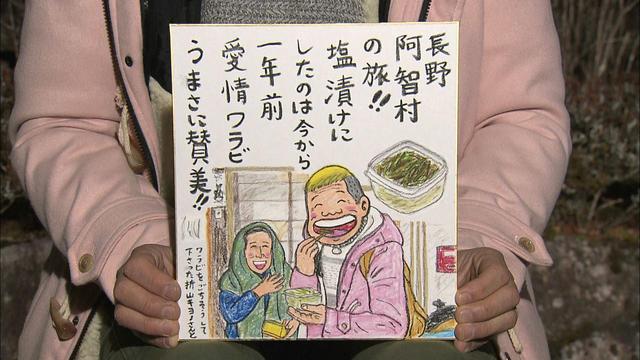 長野
阿智村
の旅!!
塩漬けに
したのは今から
一年前
愛情ワラビ
うまさに賛美!!
ワラビをごちそうして
下さった折山キヨノさんと